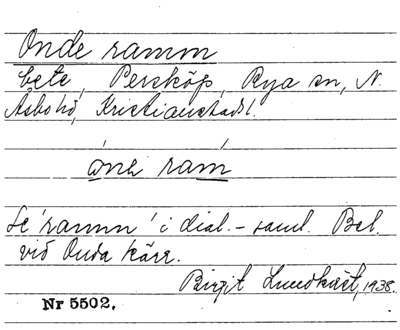 Onde ramm
bete, Perstorp, Rya sn, N.
Åsbo hd, Kristianstads l.
ramm
Se 'ramm' i dial.-saml. Bel.
vid Onda kärr.
Birgit Lundkvist, 1938.
Nr 5502.